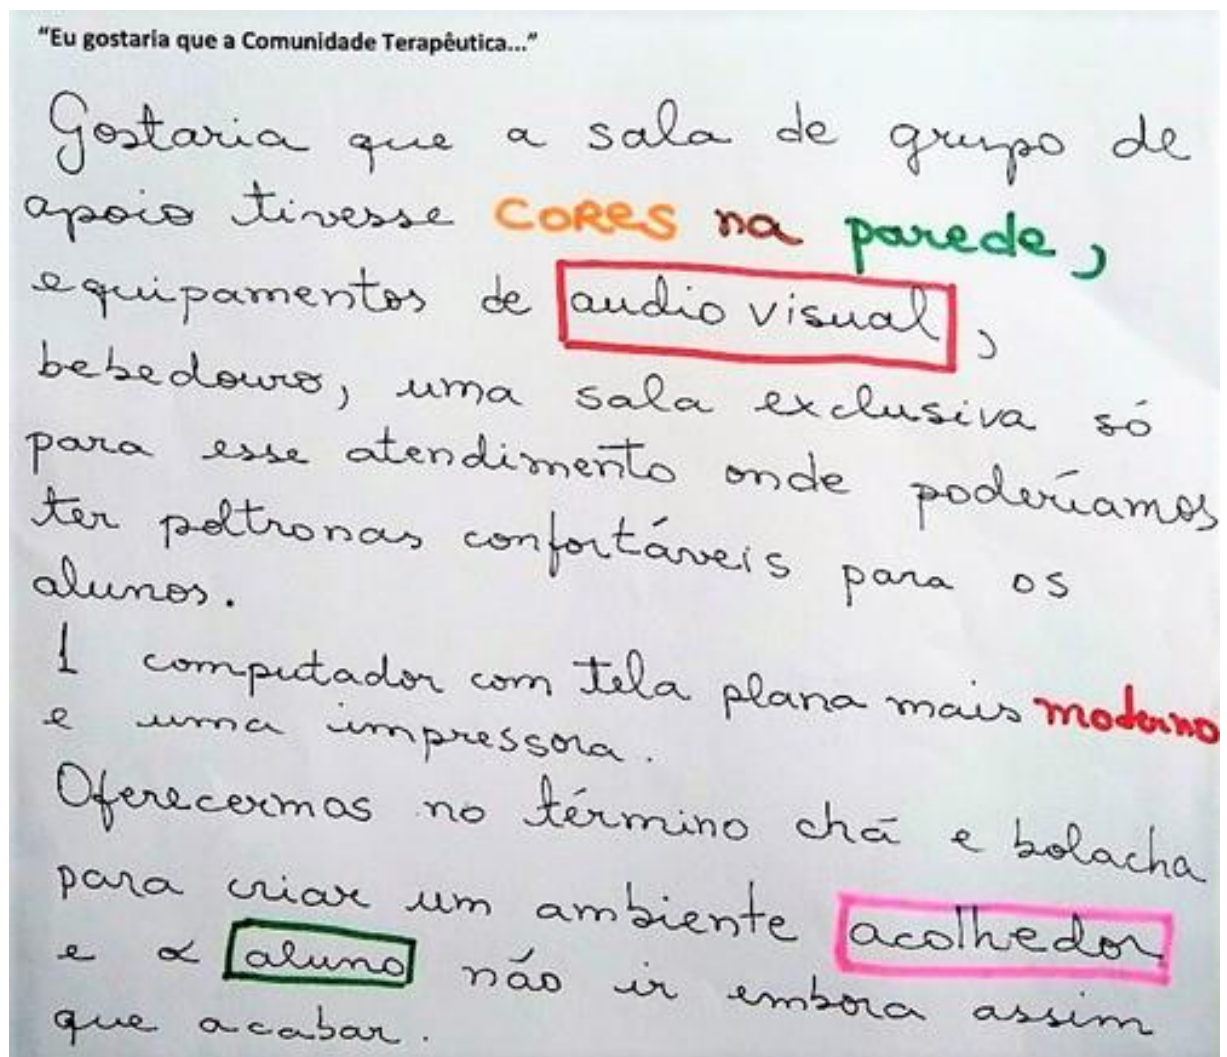 "Eu gostaria que a Comunidade Terapêutica..."
Gostaria que a sala de grupo de
apoio tivesse CORES na parede,
equipamentos de audio visual,
bebedouro, uma sala exclusiva só
para esse atendimento onde poderíamos
ter poltronas confortáveis para os
alunos.
1 computador com tela plana mais moderno
e uma impressora.
Oferecermos no término chá e bolacha
para criar um ambiente acolhedor
e o aluno não ir embora assim
que acabar.